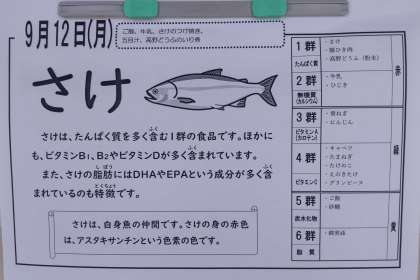 9月12日(月)
ご飯、牛乳、さけのつけ焼き、
五目汁、高野どうふのいり煮
さけ
さけは、たんぱく質を多く含む1群の食品です。ほかに
も、ビタミンB1、B2やビタミンDが多く含まれています。
また、さけの脂肪にはDHAやEPAという成分が多く含
まれているのも特徴です。
さけは、白身魚の仲間です。さけの身の赤色
は、アスタキサンチンという色素の色です。
1群
たんぱく質
・さけ
・豚ひき肉
・高野どうふ(粉末)
赤
2群
無機質
(カルシウム)
・牛乳
・ひじき
3群
ビタミンA
(カロテン)
・にんじん
緑
4群
ビタミンC
・キャベツ
・たまねぎ
・たけのこ
・えのきたけ
・グリンピース
5群
炭水化物
・ご飯
・砂糖
黄
6群
脂質